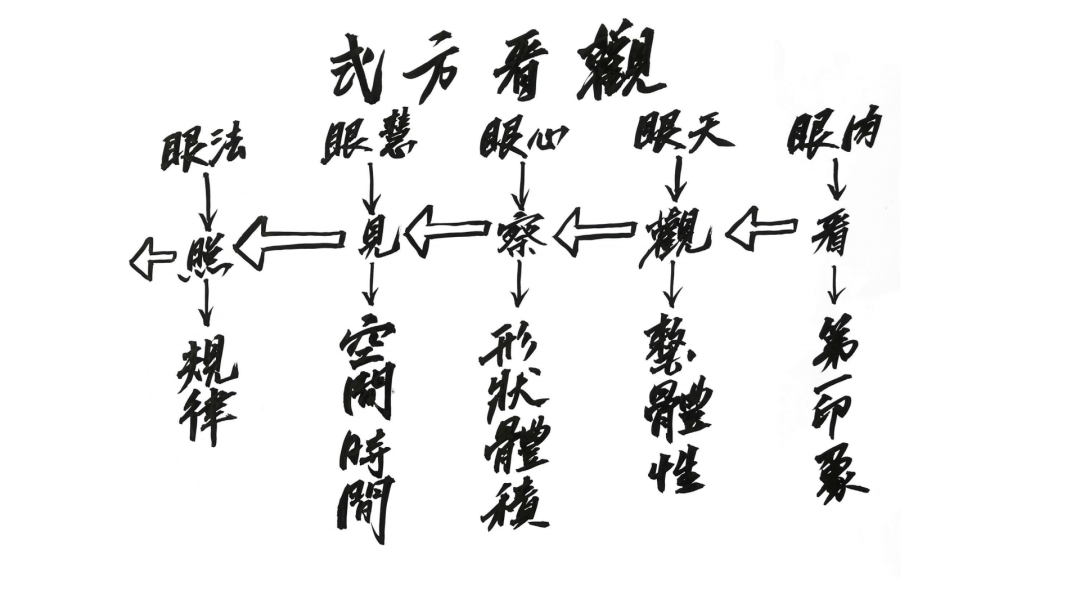 觀看方式
肉眼
看
第一印象
天眼
觀
整體性
心眼
察
形狀體積
慧眼
見
空間時間
法眼
照
規律